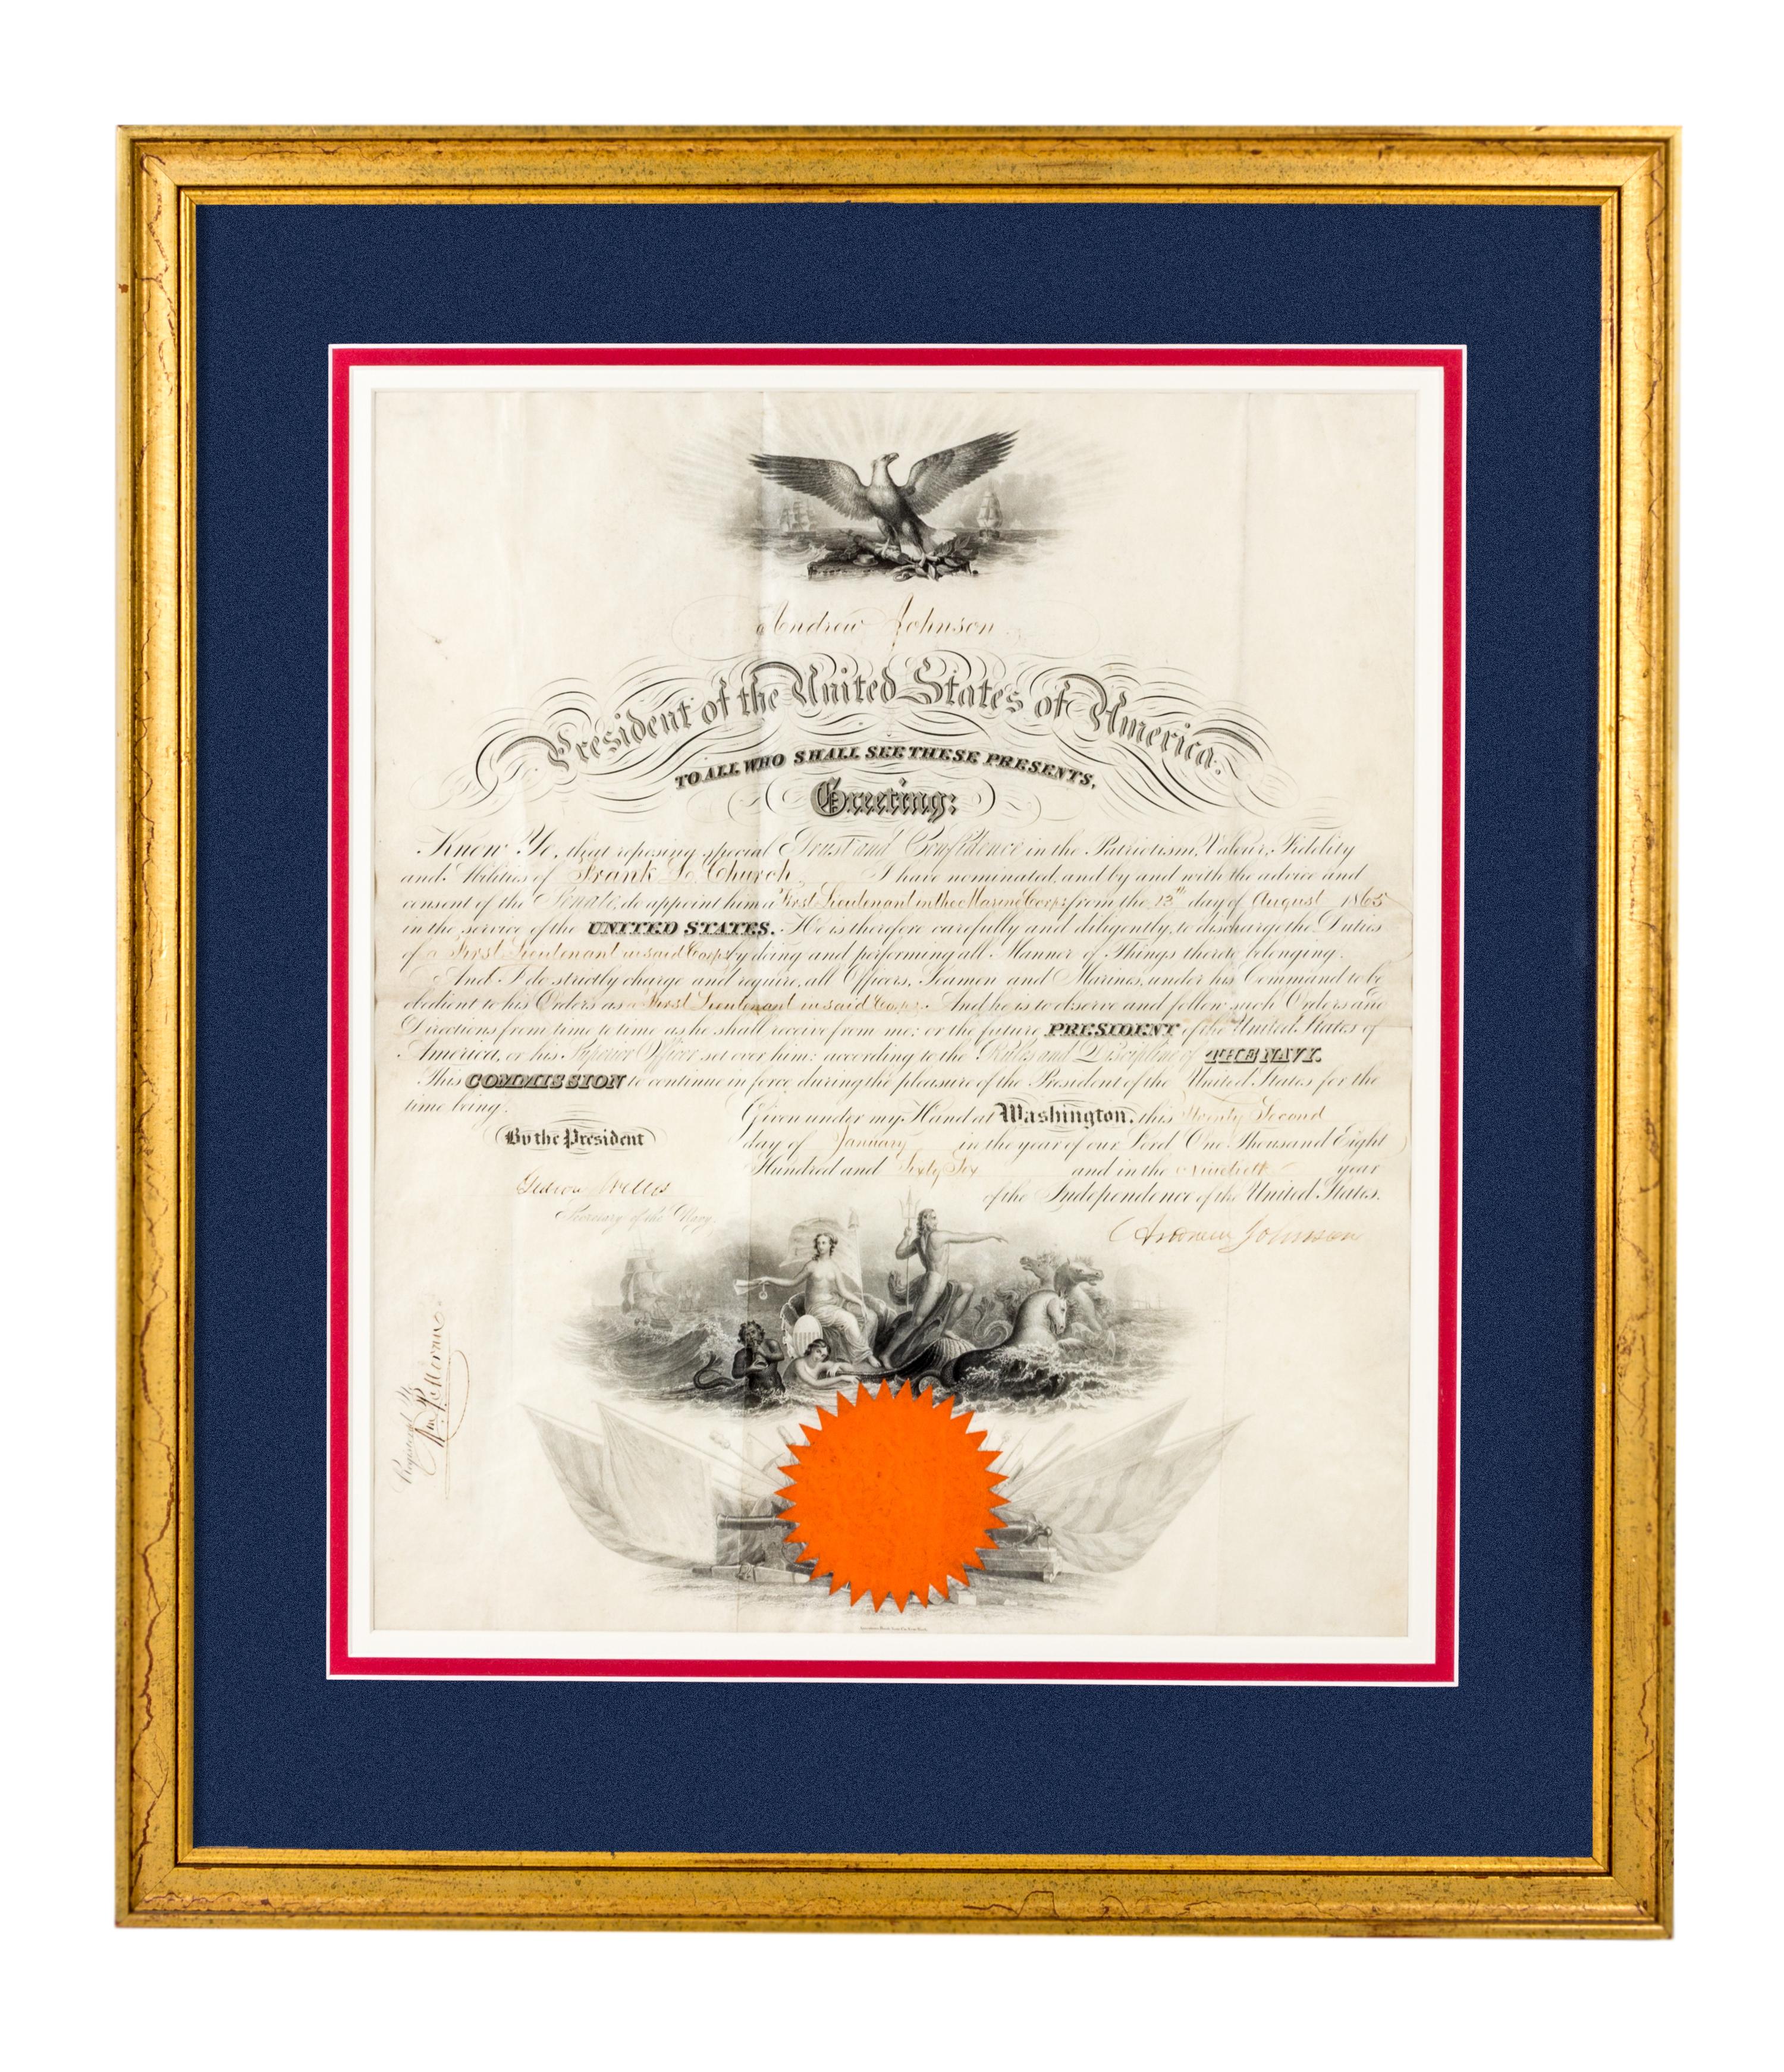 Andrew Johnson
President of the United States of America.
TO ALL WHO SHALL SEE THESE PRESENTS,
Greeting:
Know Ye, that reposing special Trust and Confidence in the Patriotism, Valour, Fidelity
and Abilities of Frank L. Church I have nominated, and by and with the advice and
consent of the Senate, do appoint him a First Lieutenant in the Marine Corps from the 13th day of August 1865
in the service of the UNITED STATES. He is therefore carefully and diligently, to discharge the Duties
of a First Lieutenant in said Corps by doing and performing all Manner of Things thereto belonging.
And I do strictly charge and require, all Officers, Seamen and Marines, under his Command to be
obedient to his Orders as a First Lieutenant in said Corps. And he is to observe and follow such Orders and
Directions from time to time as he shall receive from me; or the future PRESIDENT of the United States of
America, or his Superior Officer set over him; according to the Rules and Discipline of THE NAVY.
This COMMISSION to continue in force during the pleasure of the President of the United States for the
time being.
Given under my Hand at Washington, this Twenty Second
By the President
day of January in the year of our Lord One Thousand Eight
Hundred and Sixty Six and in the Ninetieth year
of the Independence of the United States.
Gideon Welles
Secretary of the Navy.
Andrew Johnson
Registered